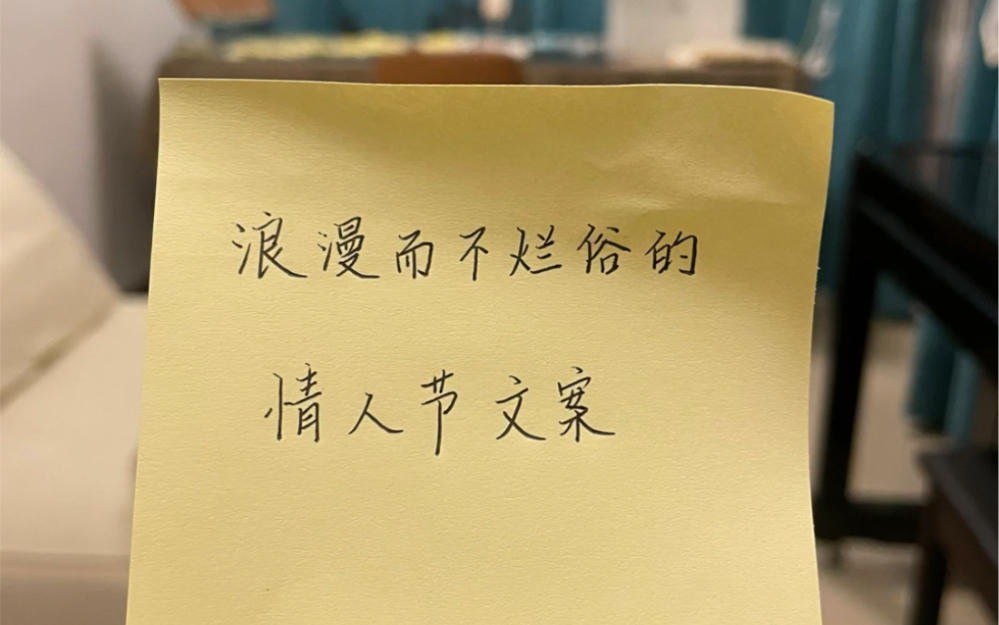 浪漫而不烂俗的
情人节文案